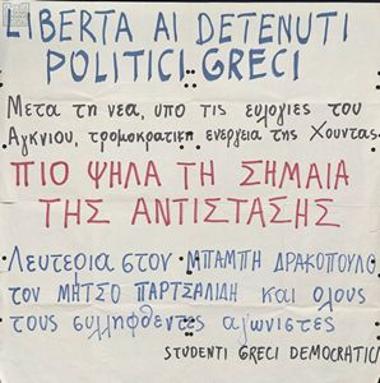 LIBERTA AI DETENUTI
POLITICI GRECI
Μετα τη νεα, υπο τις ευλογιες του
Αγκνιου, τρομοκρατικη ενεργεια της Χουντας
ΠΙΟ ΨΗΛΑ ΤΗ ΣΗΜΑΙΑ
ΤΗΣ ΑΝΤΙΣΤΑΣΗΣ
Λευτερια στον ΜΠΑΜΠΗ ΔΡΑΚΟΠΟΥΛΟ
τον ΜΗΤΣΟ ΠΑΡΤΣΑΛΙΔΗ και ολους
τους συλληφθεντες αγωνιστες
STUDENTI GRECI DEMOCRATICI